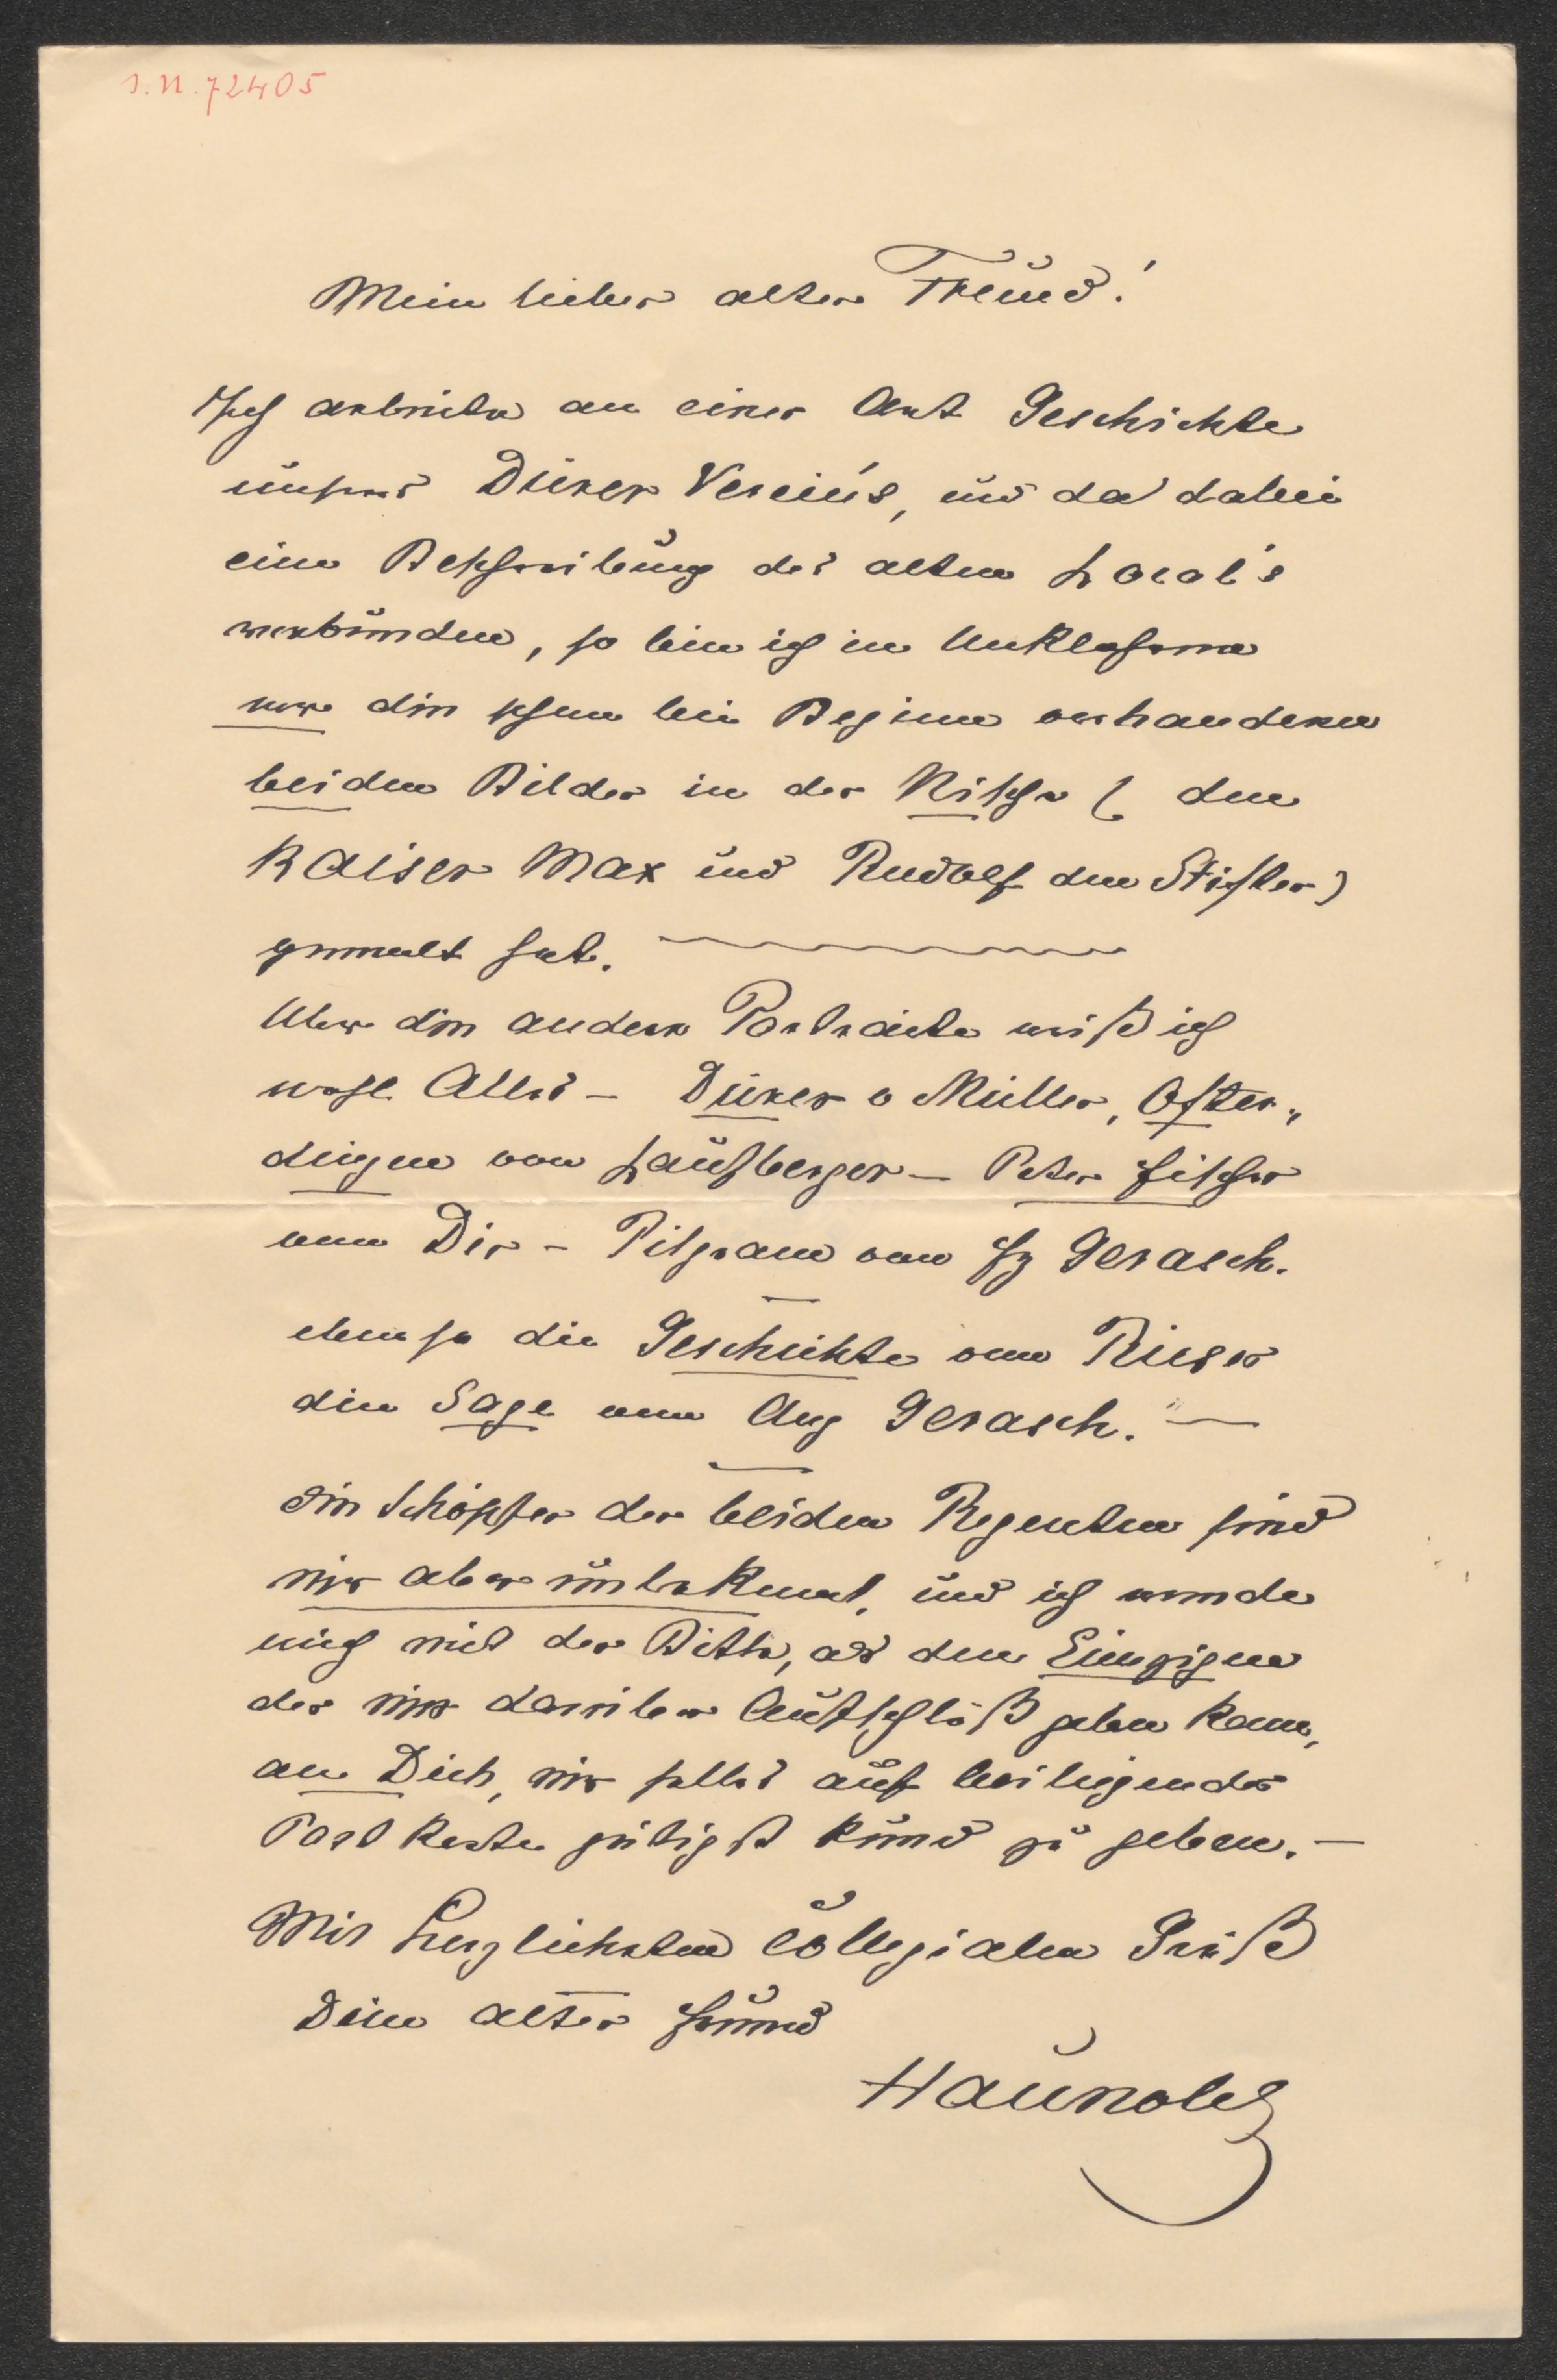 I.N. 72405
Mein lieber alter Freund!
Ich arbeite an einer Art Geschichte
unseres Dürer Verein's, und da dabei
eine Beschreibung des alten Local's
verbunden, so bin ich im Unklaren
wer die schon bei Beginn vorhandenen
beiden Bilder in der Nische (den
Kaiser Max und Rudolf den Stifter)
gemalt hat.
Über die andern Portraite weiß ich
wohl Alles – Dürer v Müller, Ofter„
dingen von Laufberger – Peter Fischer
von Dir – Pilgram von Fz Gerasch.
ebenso die Geschichte von Rieser
die Sage von Aug Gerasch. –
Die Schöpfer der beiden Regenten sind
mir aber unbekannt, und ich wende
mich mit der Bitte, als den Einzigen
der mir darüber Aufschluß geben kann,
an Dich, mir selbes auf beiliegender
Postkarte gütigst kund zu geben. –
Mit herzlichsten collegialen Gruß
Dein alter Freund